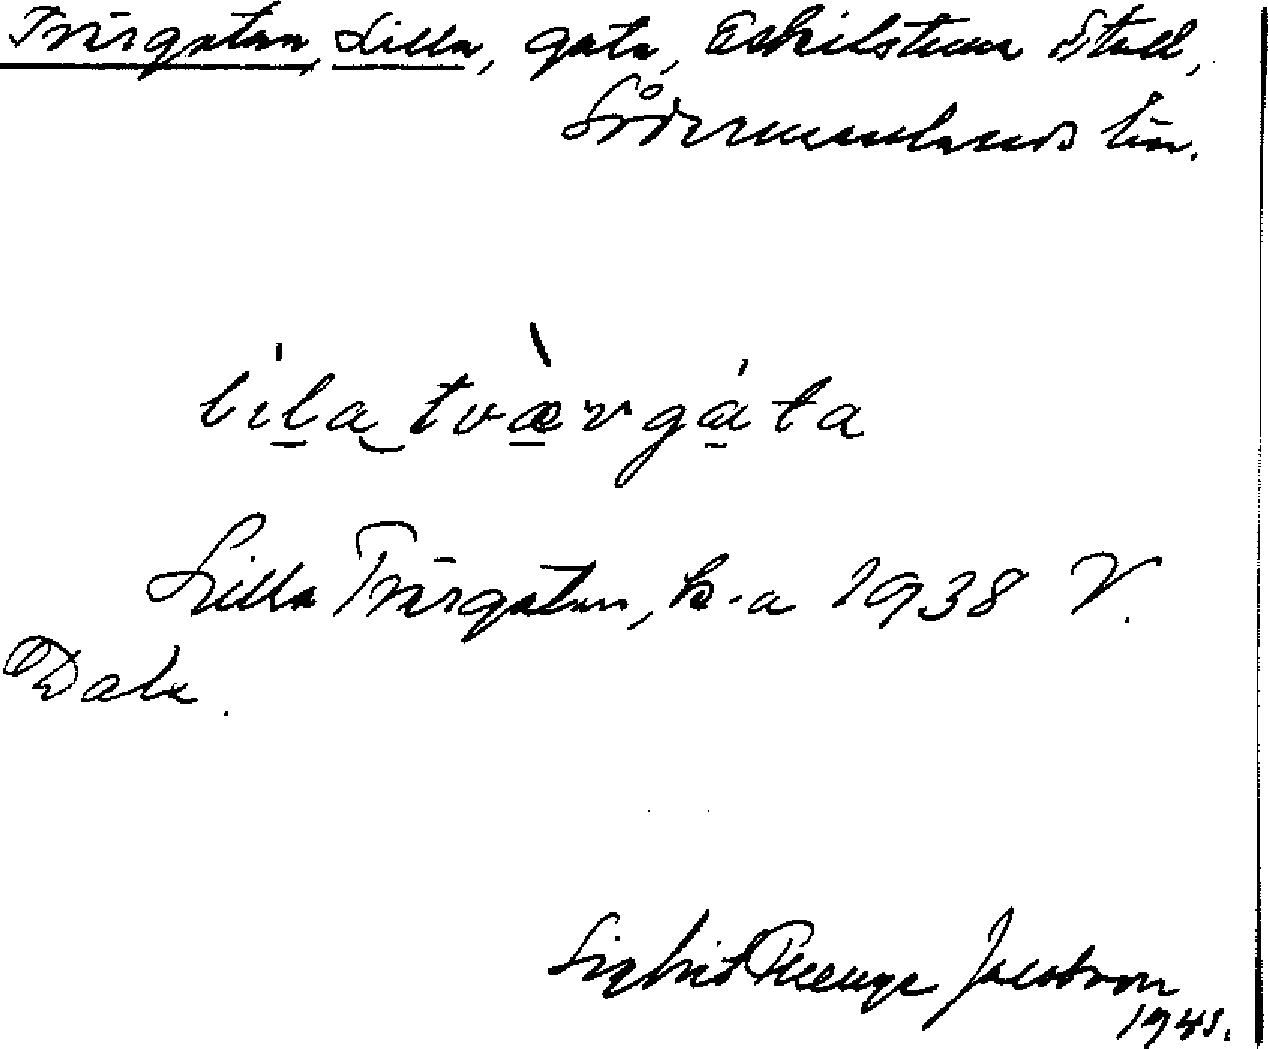 Tvärgatan, Lilla, gata, Eskilstuna Stad,
Södermanlands län.
lila tværgata
Lilla Tvärgatan, k-a 1938 V.
Dala.
Sigbrit Jacobson
1941.